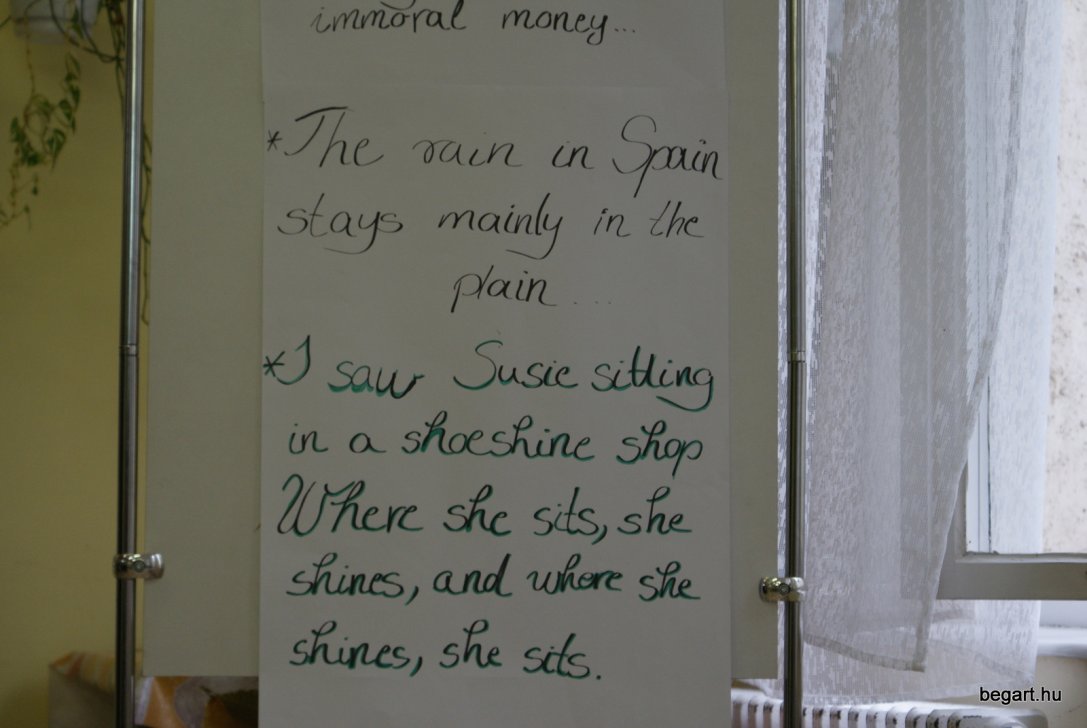 immoral money...
*The rain in Spain
stays mainly in the
plain...
*I saw Susie sitting
in a shoeshine shop
Where she sits, she
shines, and where she
shines, she sits.
begart.hu